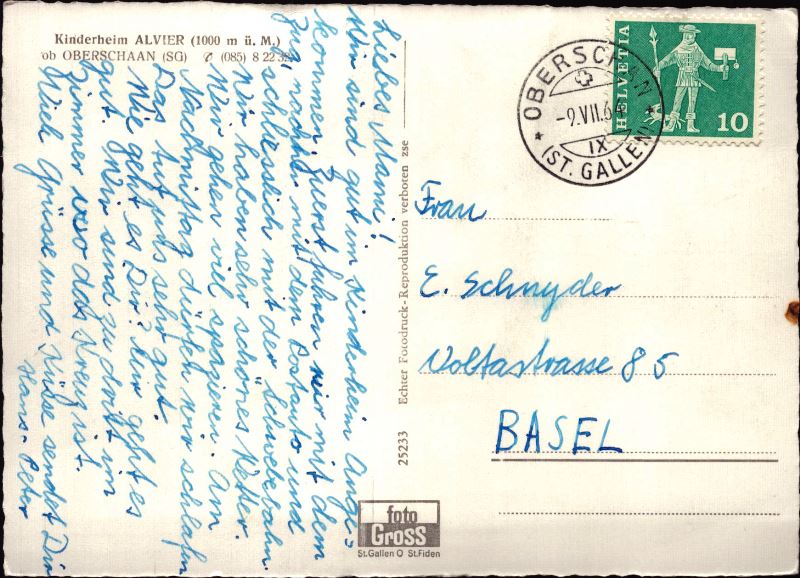 Kinderheim ALVIER (1000 m ü. M.)
ob OBERSCHAAN (SG) ✆ (085) 8 22 32
Liebes Mami!
Wir sind gut im Kinderheim Ange-
kommen. Zuerst fuhren wir mit dem
Zug nachh. mit dem Postauto und
schliesslich mit der Schwebebahn.
Wir haben sehr schönes Wetter.
Wir gehen viel spazieren. Am
Nachmittag dürfen wir schlafen
Das tut uns sehr gut.
Wie geht es Dir? Mir geht es
gut. Wir sind zu dritt im
Zimmer wo das Kreuz ist.
Viele Grüsse und Küsse sendet Dir
Hans-Peter
25233 Echter Fotodruck-Reproduktion verboten zse
foto
Gross
St.Gallen O St.Fiden
OBERSCHAN
-9.VII.64
IX
(ST. GALLEN)
HELVETIA
10
Frau
E. Schnyder
Voltastrasse 85
BASEL